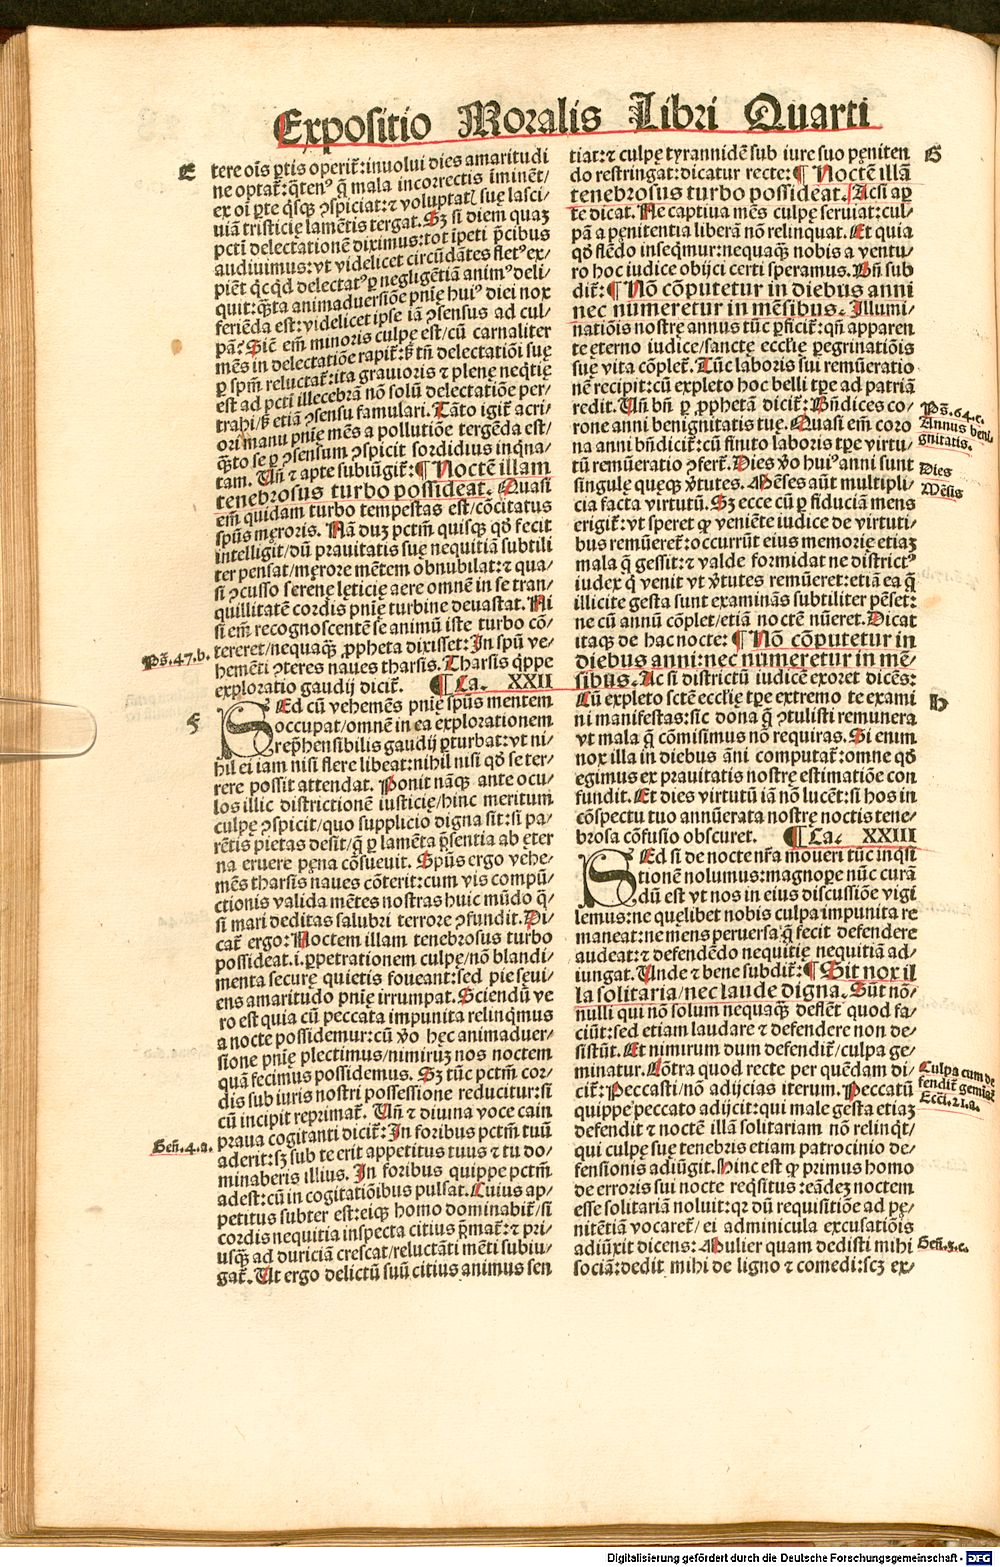 Expositio Moralis Libri Quarti
E
tere oīs ꝑtis operit᷑: inuolui dies amaritudi
ne optat᷑: q̄tenꝰ q̄ mala incorrectis īminēt/
ex oī ꝑte q̇sqꝫ ꝯspiciat: ⁊ voluptatꝭ suę lasci-
uiā tristicię lamētis tergat. Sꝫ si diem quaꝫ
pctī delectationē diximus: tot īpeti p̄cibus
audiuimus: vt videlicet circūdātes fletꝰ ex-
piēt q̇cqd̄ delectatꝰ ꝑ negligētiā animꝰ deli-
quit: q̄ta animaduersiōe pnīę huiꝰ diei nox
feriēda est: videlicet ipse iā ꝯsensus ad cul-
pā? Sic̄ em̄ minoris culpę est/cū carnaliter
mēs in delectatiōe rapit᷑: ß tn̄ delectatiōi suę
ꝑ spm̄ reluctat᷑: ita grauioris ⁊ plenę neq̇tię
est ad pctī illecebrā nō solū delectatiōe per/
trahi/ß etiā ꝯsensu famulari. Tāto igit᷑ acri/
ori manu pnīę mēs a pollutiōe tergēda est/
q̄to se ꝑ ꝯsensum ꝯspicit sordidius inq̇na/
tam. Vn̄ ⁊ apte subiūgit᷑: ¶ Noctē illam
tenebrosus turbo possideat. Quasi
em̄ quidam turbo tempestas est/cōcitatus
spūs męroris. Nā duꝫ pctm̄ quisqꝫ qd̄ fecit
intelligit/dū prauitatis suę nequitiā subtili
ter pensat/męrore mētem obnubilat: ⁊ qua/
si ꝯcusso serenę lęticię aere omnē in se tran/
quillitatē cordis pnīę turbine deuastat. Ni
si em̄ recognoscentē se animū iste turbo cō/
tereret/nequaqꝫ ꝓpheta dixisset: In spū ve/
Ps̄.47.b.
hemēti ꝯteres naues tharsis. Tharsis q̇ppe
exploratio gaudij dicit᷑. ¶ Ca. XXII
F
SEd cū vehemēs pnīę spūs mentem
occupat/omnē in ea explorationem
rep̄hensibilis gaudij ꝑturbat: vt ni/
hil ei iam nisi flere libeat: nihil nisi qd̄ se ter/
rere possit attendat. Ponit nāqꝫ ante ocu/
los illic districtionē iusticię/hinc meritum
culpę ꝯspicit/quo supplicio digna sit: si pa/
rētis pietas desit/q̄ ꝑ lamēta p̄sentia ab ęter
na eruere pęna cōsueuit. Spūs ergo vehe/
mēs tharsis naues cōterit: cum vis compū/
ctionis valida mētes nostras huic mūdo q̄/
si mari deditas salubri terrore ꝯfundit. Di/
cat᷑ ergo: Noctem illam tenebrosus turbo
possideat. i. ꝑpetrationem culpę/nō blandi/
menta securę quietis foueant: sed pie sęui/
ens amaritudo pnīę irrumpat. Sciendū ve
ro est quia cū peccata impunita relinq̇mus
a nocte possidemur: cū v̄o hęc animaduer/
sione pnīę plectimus/nimiruꝫ nos noctem
quā fecimus possidemus. Sꝫ tūc pctm̄ cor/
dis sub iuris nostri possessione reducitur: si
cū incipit reprimat᷑. Vn̄ ⁊ diuina voce cain
praua cogitanti dicit᷑: In foribus pctm̄ tuū
Gen̄.4.a.
aderit: sꝫ sub te erit appetitus tuus ⁊ tu do/
minaberis illius. In foribus quippe pctm̄
adest: cū in cogitatiōibus pulsat. Cuius ap/
petitus subter est: eiqꝫ homo dominabit᷑/si
cordis nequitia inspecta citius p̄mat᷑: ⁊ pri/
usqꝫ ad duriciā crescat/reluctāti mēti subiu/
gat᷑. Ut ergo delictū suū citius animus sen
tiat: ⁊ culpę tyrannidē sub iure suo pęniten
G
do restringat: dicatur recte: ¶ Noctē illā
tenebrosus turbo possideat. Acsi aꝑ
te dicat. Ne captiua mēs culpę seruiat: cul/
pā a pęnitentia liberā nō relinquat. Et quia
qd̄ flēdo inseq̇mur: nequaqꝫ nobis a ventu/
ro hoc iudice obijci certi speramus. Bn̄ sub
dit᷑: ¶ Nō cōputetur in diebus anni
nec numeretur in mēsibus. Illumi/
natiōis nostrę annus tūc ꝑficit᷑: qn̄ apparen
te ęterno iudice/sanctę ecclīę ꝑegrinatiōis
suę vita cōplet᷑. Tūc laboris sui remūeratio
nē recipit: cū expleto hoc belli tꝑe ad patriā
redit. Vn̄ bn̄ ꝑ ꝓphetā dicit᷑: Bn̄dices co/
Ps̄.64.c.
rone anni benignitatis tuę. Quasi em̄ coro
Annus beni
gnitatis.
na anni bn̄dicit᷑: cū finito laboris tꝑe virtu/
tū remūeratio ꝯfert᷑. Dies v̄o huiꝰ anni sunt
Dies
singulę quęqꝫ v̄tutes. Mēses aūt multipli/
Mēsis
cia facta virtutū. Sꝫ ecce cū ꝑ fiduciam mens
erigit᷑: vt speret ꝙ veniēte iudice de virtuti/
bus remūeret᷑: occurrūt eius memorię etiaꝫ
mala q̄ gessit: ⁊ valde formidat ne districtꝰ
iudex q̄ venit vt v̄tutes remūeret: etiā ea q̄
illicite gesta sunt examinās subtiliter pēset:
ne cū annū cōplet/etiā noctē nūeret. Dicat
itaqꝫ de hac nocte: ¶ Nō cōputetur in
diebus anni: nec numeretur in mē/
sibus. Ac si districtū iudicē exoret dicēs:
H
Cū expleto sctē ecclīę tꝑe extremo te exami
ni manifestas: sic dona q̄ ꝯtulisti remunera
vt mala q̄ cōmisimus nō requiras. Si enim
nox illa in diebus āni computat᷑: omne qd̄
egimus ex prauitatis nostrę estimatiōe con
fundit. Et dies virtutū iā nō lucēt: si hos in
cōspectu tuo annūerata nostrę noctis tene/
brosa cōfusio obscuret. ¶ Ca. XXIII
SEd si de nocte nr̄a moueri tūc inq̇si
tionē nolumus: magnopere nūc curā
dū est vt nos in eius discussiōe vigi
lemus: ne quęlibet nobis culpa impunita re
maneat: ne mens peruersa q̄ fecit defendere
audeat: ⁊ defendēdo nequitię nequitiā ad/
iungat. Unde ⁊ bene subdit᷑: ¶ Sit nox il
la solitaria/nec laude digna. Sūt nō/
nulli qui nō solum nequaqꝫ deflēt quod fa/
ciūt: sed etiam laudare ⁊ defendere non de/
sistūt. Et nimirum dum defendit᷑/culpa ge/
minatur. Cōtra quod recte per quēdam di/
Culpa cum de
fendit᷑ gemiat᷑
cit᷑: Peccasti/nō adijcias iterum. Peccatū
Eccī.21.a.
quippe peccato adijcit: qui male gesta etiaꝫ
defendit ⁊ noctē illā solitariam nō relinq̇t/
qui culpę suę tenebris etiam patrocinio de/
fensionis adiūgit. Hinc est ꝙ primus homo
de erroris sui nocte req̇situs: eādeꝫ noctem
esse solitariā noluit: qꝛ dū requisitiōe ad pę/
nitētiā vocaret᷑/ei adminicula excusatiōis
adiūxit dicens: Mulier quam dedisti mihi
Gen̄.3.c.
sociā: dedit mihi de ligno ⁊ comedi: scꝫ ex/
Digitalisierung gefördert durch die Deutsche Forschungsgemeinschaft - DFG